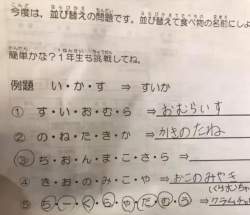 今度は、並び替えの問題です。並び替えて食べ物の名前にしよ
簡単かな？１年生も挑戦してね。
例題 い・か・す ⇒ すいか
① す・い・お・む・ら ⇒ おむらいす
② の・ね・た・き・か ⇒ かきのたね
③ ち・お・ん・ま・こ・さ・ら ⇒
④ き・お・の・み・こ・や ⇒ おこのみやき
⑤ ち・ー・く・ら・や・だ・む・う ⇒ クラムチャ